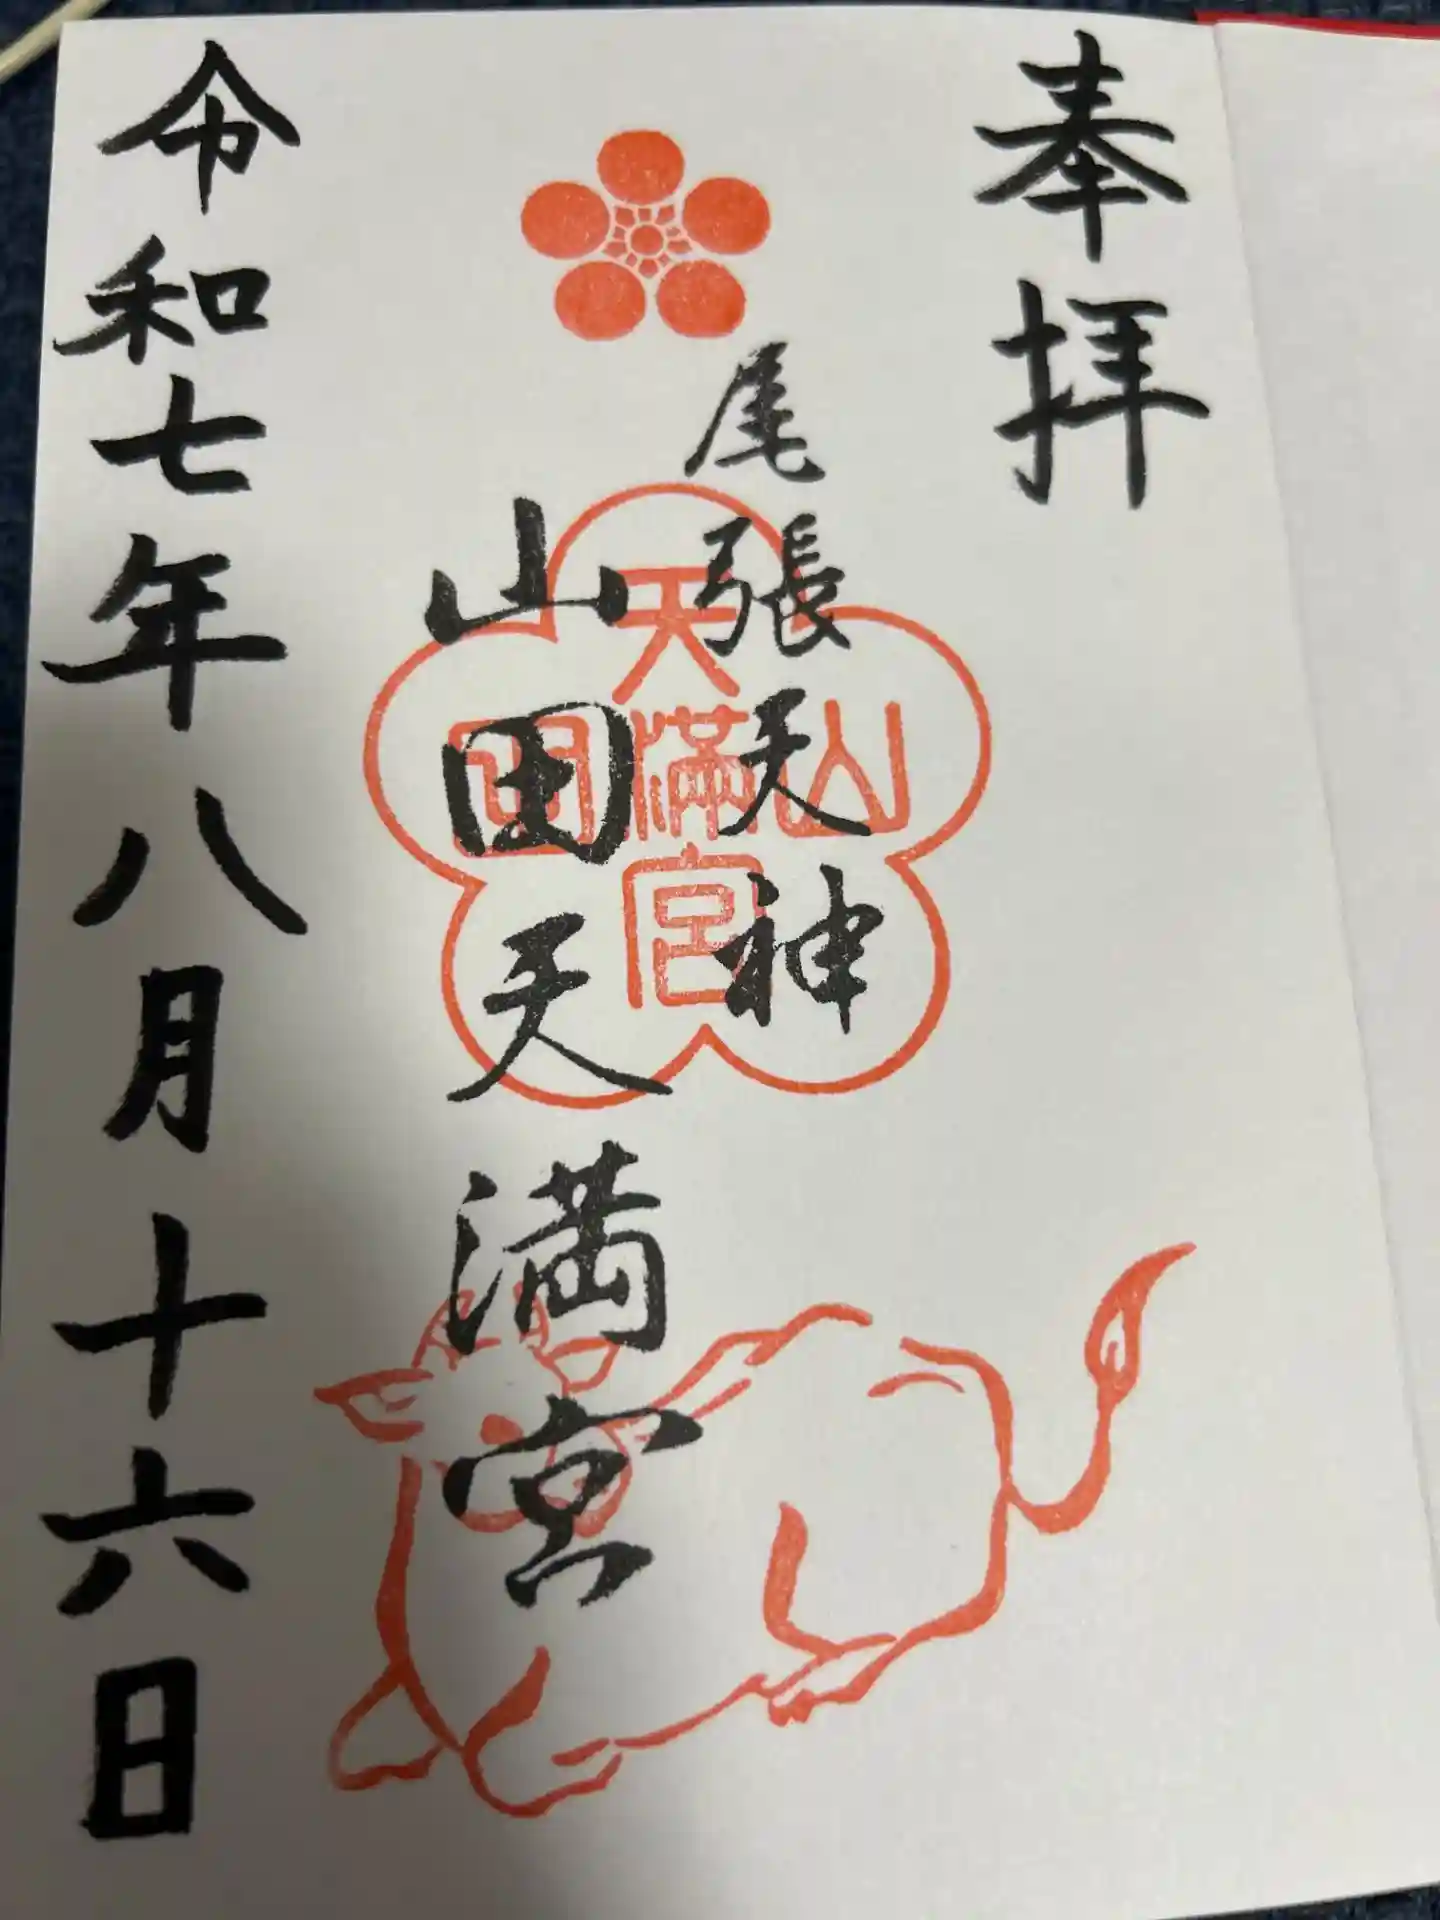 奉拝
尾張天神
山田天満宮
山田天満宮
令和七年八月十六日